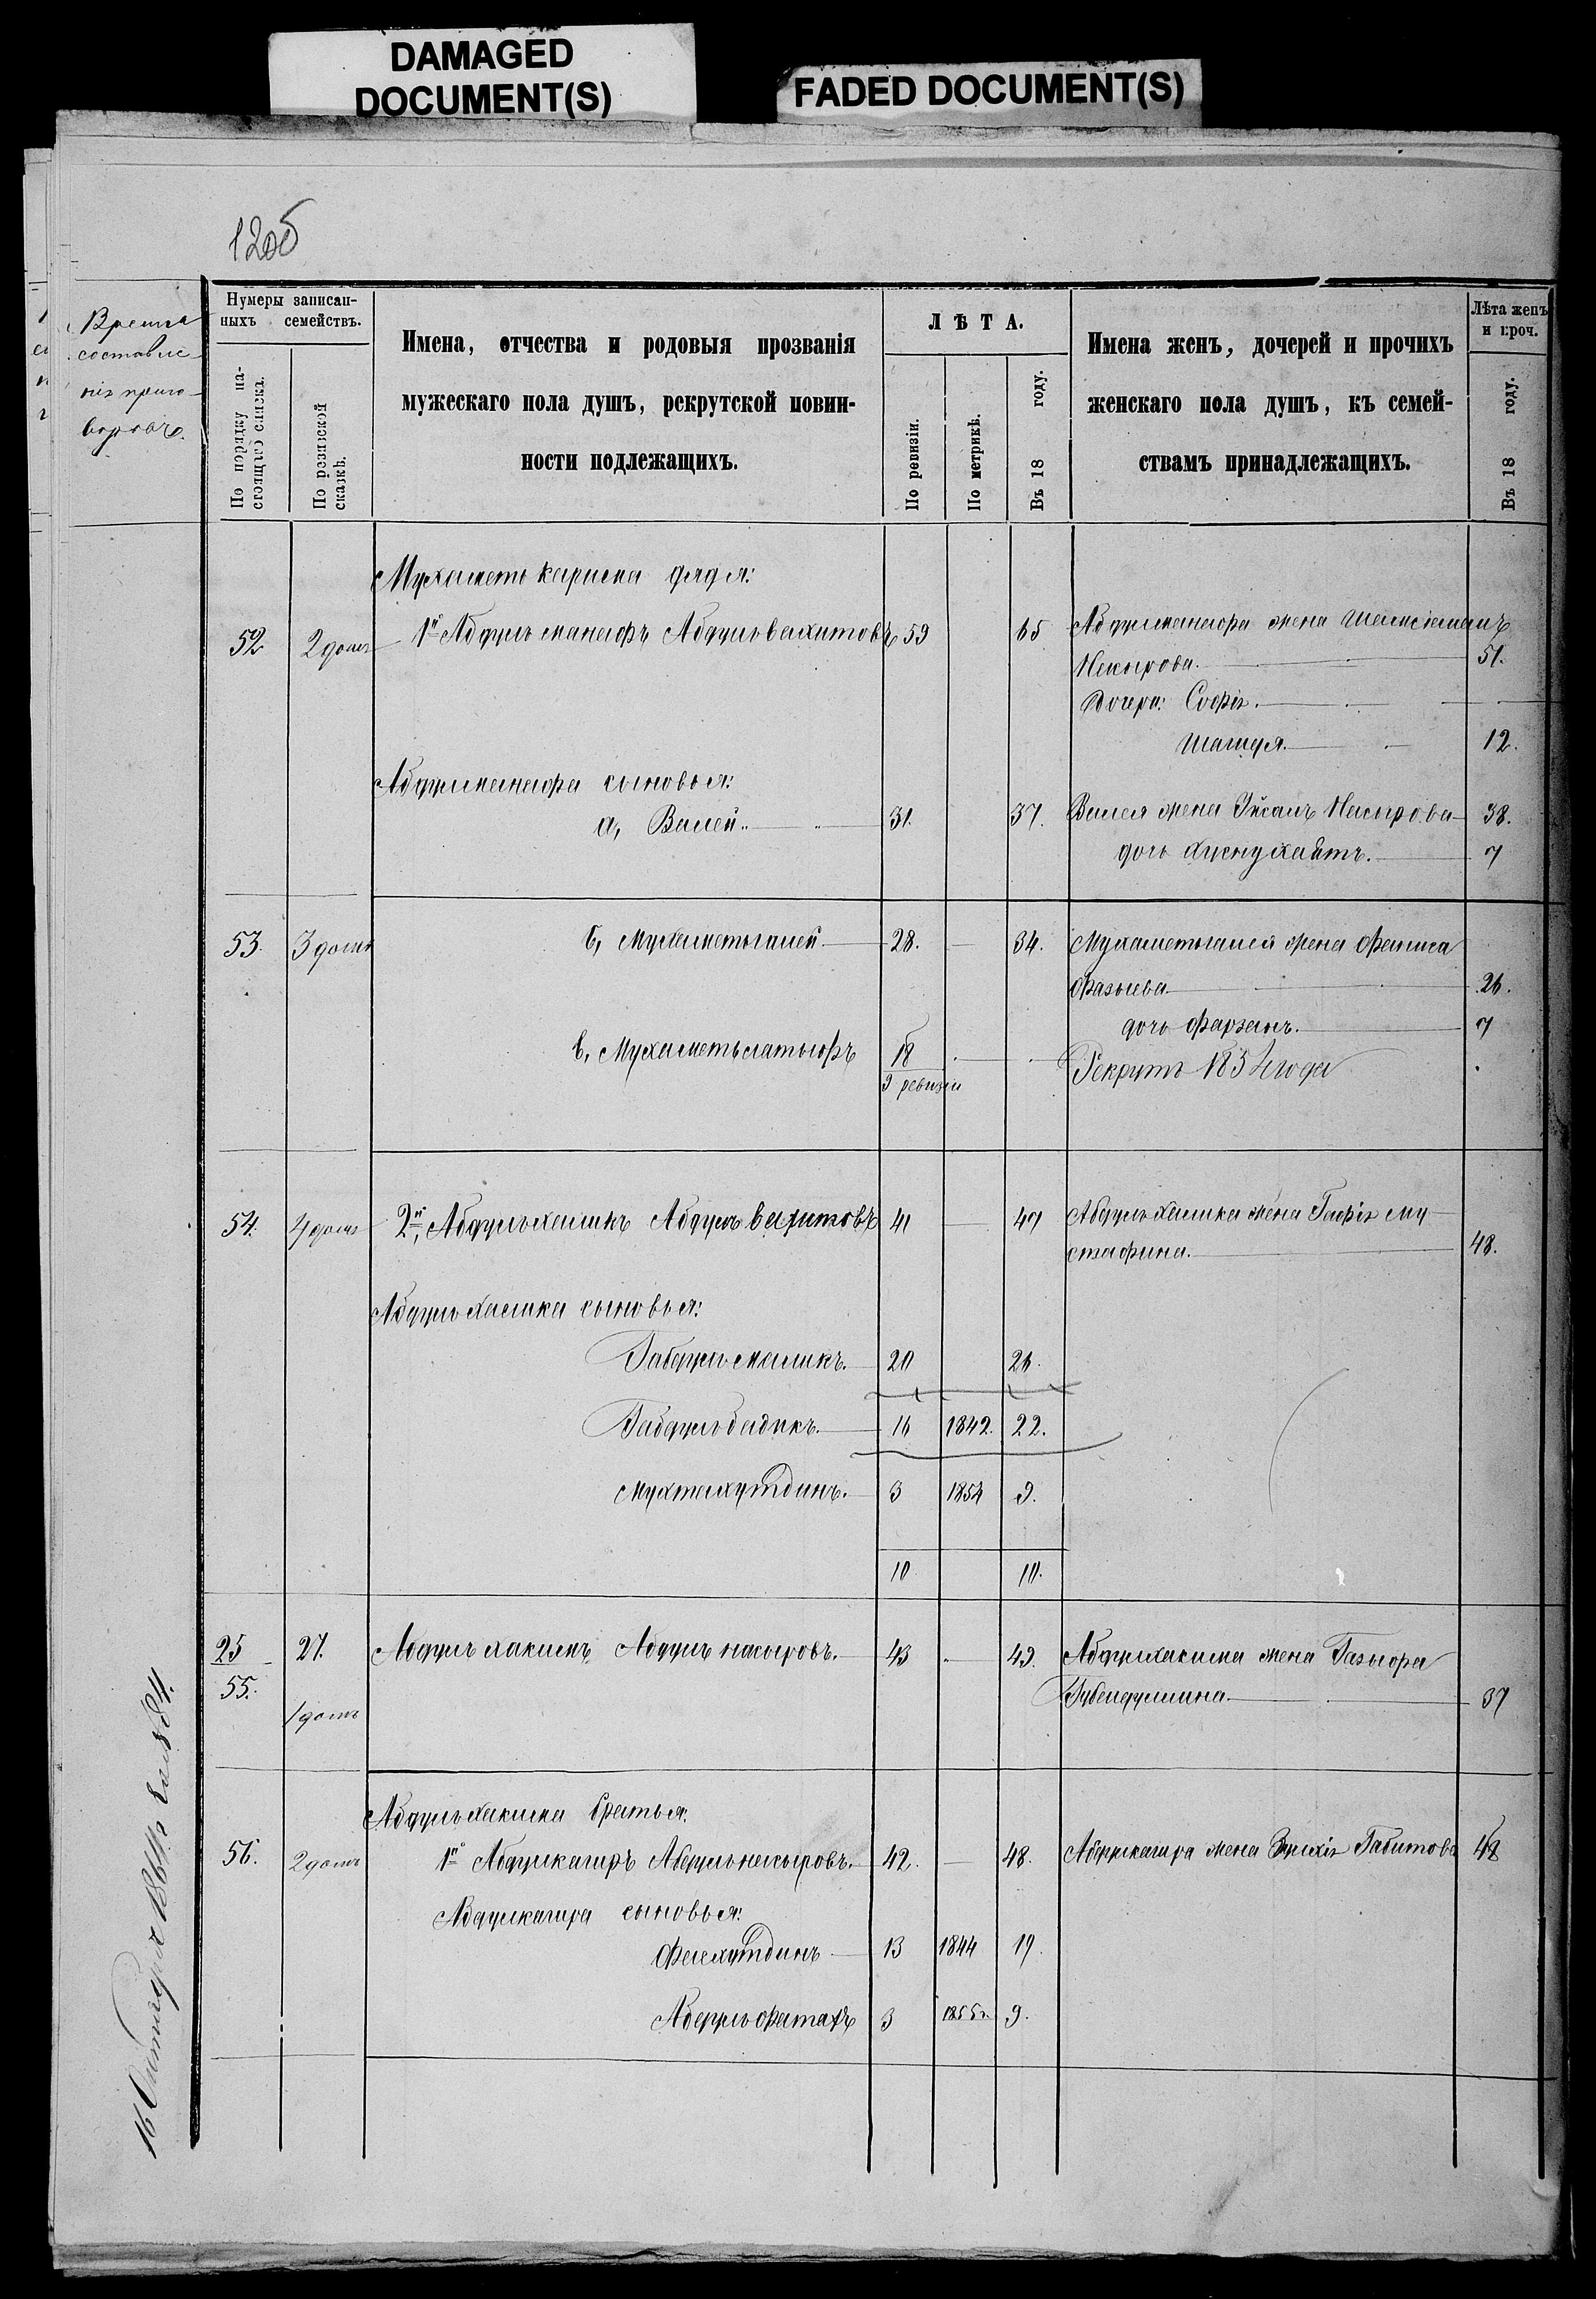 DAMAGED
DOCUMENT(S)
FADED DOCUMENT(S)
Время
составле-
нія приго-
воровъ.
Нумеры записан-
ныхъ семействъ.
По порядку на-
стоящаго списка.
По ревизской
сказкѣ.
Имена, отчества и родовыя прозванія
мужескаго пола душъ, рекрутской повин-
ности подлежащихъ.
ЛѢТА.
По ревизіи.
По метрикѣ.
Въ 18 году.
Имена женъ, дочерей и прочихъ
женскаго пола душъ, къ семей-
ствамъ принадлежащихъ.
Лѣта женъ
и проч.
Въ 18 году.
Мухаметь карима дядя:
52 2 домъ 1й Абдулъ манафъ Абдулъ вахитовъ 59 65 Абдулманафа жена
Насырова. 51.
Дочери: Софія.
12.
Абдулманафа сыновья:
а, Валей 31. 37. Валея жена Насырова 38.
дочь 7
53. 3 домъ б, Мухаметьгалей 28. 34. Мухаметьгалея жена
26.
дочь Фарзанъ. 7
в, Мухаметьлатыфъ 18
9 ревизіи Рекрутъ 1854 года
54. 4 домъ 2й, Абдулъхаликъ Абдулъ вахитовъ 41 47 Абдулъхалика жена Гафія Му-
стафина. 48.
Абдулъ халика сыновья:
Габдулъ маликъ. 20 26.
Габдулъ бадикъ. 16 1842. 22.
Мухтахутдинъ. 3 1854 9.
10 10.
25 27. Абдулъ хакимъ Абдулъ насыровъ. 43 49. Абдулхакима жена
55.
1 домъ
Губейдуллина. 37
Абдулъ хакима братья:
56. 2 домъ 1й Абдулкагиръ Абдулъ насыровъ. 42. 48. Абдулкагира жена Габитова 48
Абдулкагира сыновья:
Фахутдинъ 13 1844 19.
Абдулъ фатахъ 3 1855г. 9.